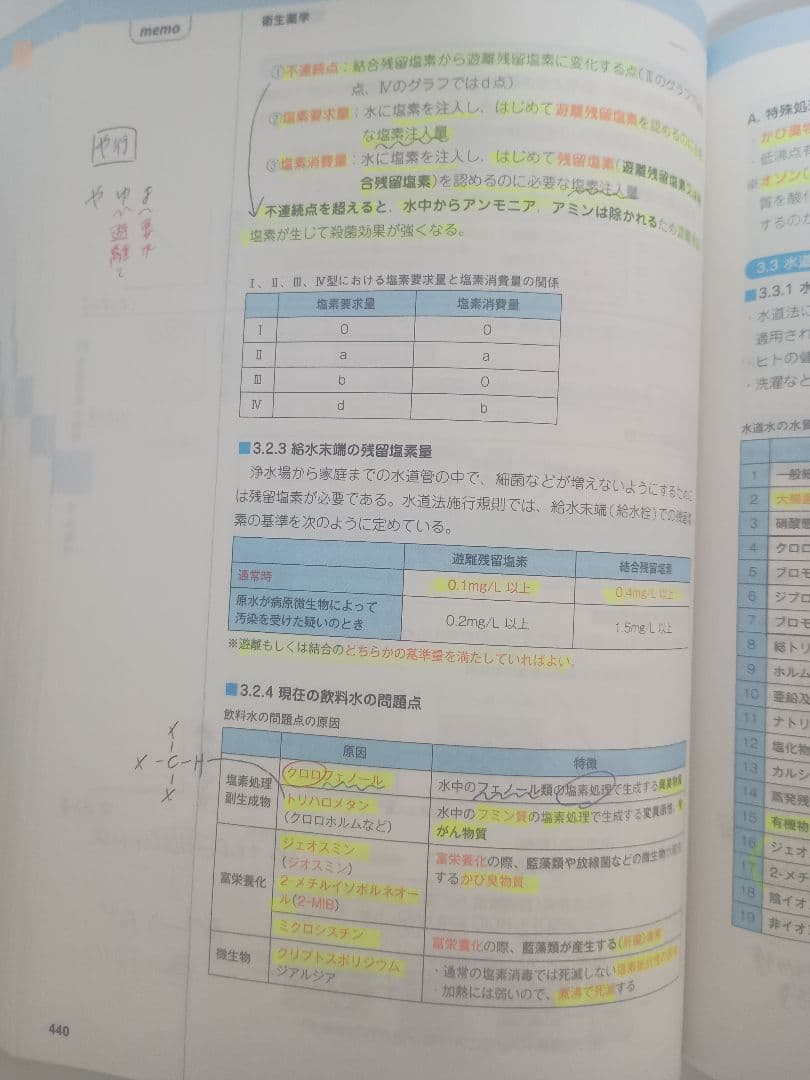 memo
衛生薬学
や行
や ゆ よ
遊離 要求
①不連続点：結合残留塩素から遊離残留塩素に変化する点（Ⅲのグラフでは
点、Ⅳのグラフではd点）
②塩素要求量：水に塩素を注入し、はじめて遊離残留塩素を認めるのに
な塩素注入量
③塩素消費量：水に塩素を注入し、はじめて残留塩素（遊離残留塩素
合残留塩素）を認めるのに必要な塩素注入量
不連続点を超えると、水中からアンモニア、アミンは除かれるため
塩素が生じて殺菌効果が強くなる。
Ⅰ、Ⅱ、Ⅲ、Ⅳ型における塩素要求量と塩素消費量の関係
塩素要求量 塩素消費量
Ⅰ 0 0
Ⅱ a a
Ⅲ b 0
Ⅳ d b
■3.2.3 給水末端の残留塩素量
浄水場から家庭までの水道管の中で、細菌などが増えないようにするために
は残留塩素が必要である。水道法施行規則では、給水末端（給水栓）での残留塩
素の基準を次のように定めている。
遊離残留塩素 結合残留塩素
通常時 0.1mg/L 以上 0.4mg/L 以上
原水が病原微生物によって
汚染を受けた疑いのとき 0.2mg/L 以上 1.5mg/L 以上
※遊離もしくは結合のどちらかの基準量を満たしていればよい。
■3.2.4 現在の飲料水の問題点
飲料水の問題点の原因
原因 特徴
X
X-C-H
X
塩素処理
副生成物
クロロフェノール 水中のフェノール類の塩素処理で生成する異臭物質
トリハロメタン
（クロロホルムなど）
水中のフミン質の塩素処理で生成する変異原性
がん物質
富栄養化
ジェオスミン
（ジオスミン）
2-メチルイソボルネオー
ル（2-MIB）
富栄養化の際、藍藻類や放線菌などの微生物が
するかび臭物質
ミクロシスチン 富栄養化の際、藍藻類が産生する
微生物
クリプトスポリジウム
ジアルジア
・通常の塩素消毒では死滅しない
・加熱には弱いので、煮沸で死滅する
440
A. 特殊処
かび臭物
・低沸点有
※オゾン（
質を酸化
するのが
3.3 水道
■3.3.1 水
・水道法に
適用され
・ヒトの健
・洗濯など
水道水の水質
1 一般細
2 大腸菌
3 硝酸態
4 クロロ
5 ブロモ
6 ジブロ
7 ブロモ
8 総トリ
9 ホルム
10 亜鉛及
11 ナトリ
12 塩化物
13 カルシ
14 蒸発残
15 有機物
16 ジェオ
17 2-メチ
18 陰イオ
19 非イオ